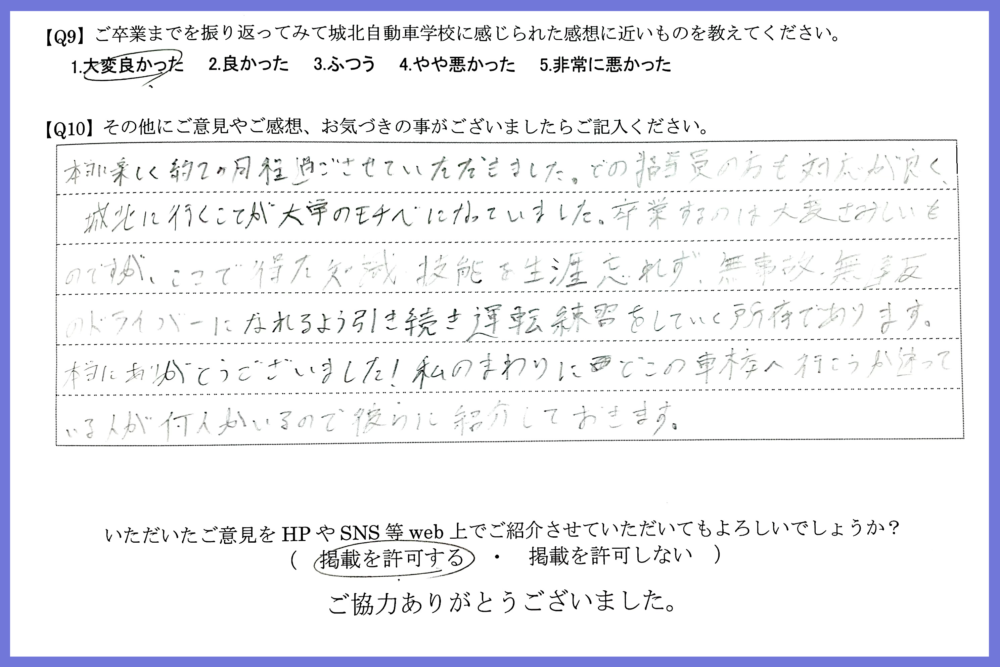 【Q9】ご卒業までを振り返ってみて城北自動車学校に感じられた感想に近いものを教えてください。
1.大変良かった 2.良かった 3.ふつう 4.やや悪かった 5.非常に悪かった
【Q10】その他にご意見やご感想、お気づきの事がございましたらご記入ください。
本当に楽しく約2ヶ月程過ごさせていただきました。どの指導員の方も対応が良く、
城北に行くことが大学のモチベになっていました。卒業するのは大変さみしいも
のですが、ここで得た知識 技能を生涯忘れず、無事故・無違反
のドライバーになれるよう引き続き運転練習をしていく所存であります。
本当にありがとうございました!私のまわりにどこの車校へ行こうか迷って
いる人が何人かいるので彼らに紹介しておきます。
いただいたご意見をHPやSNS等web上でご紹介させていただいてもよろしいでしょうか?
( 掲載を許可する ・ 掲載を許可しない )
ご協力ありがとうございました。